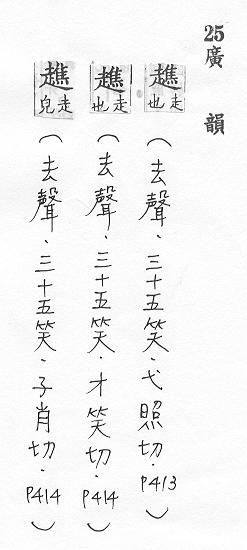 25廣韻
趭走也（去聲．三十五笑．弋照切．P413）
趭走也（去聲．三十五笑．才笑切．P414）
趭走皃（去聲．三十五笑．子肖切．P414）